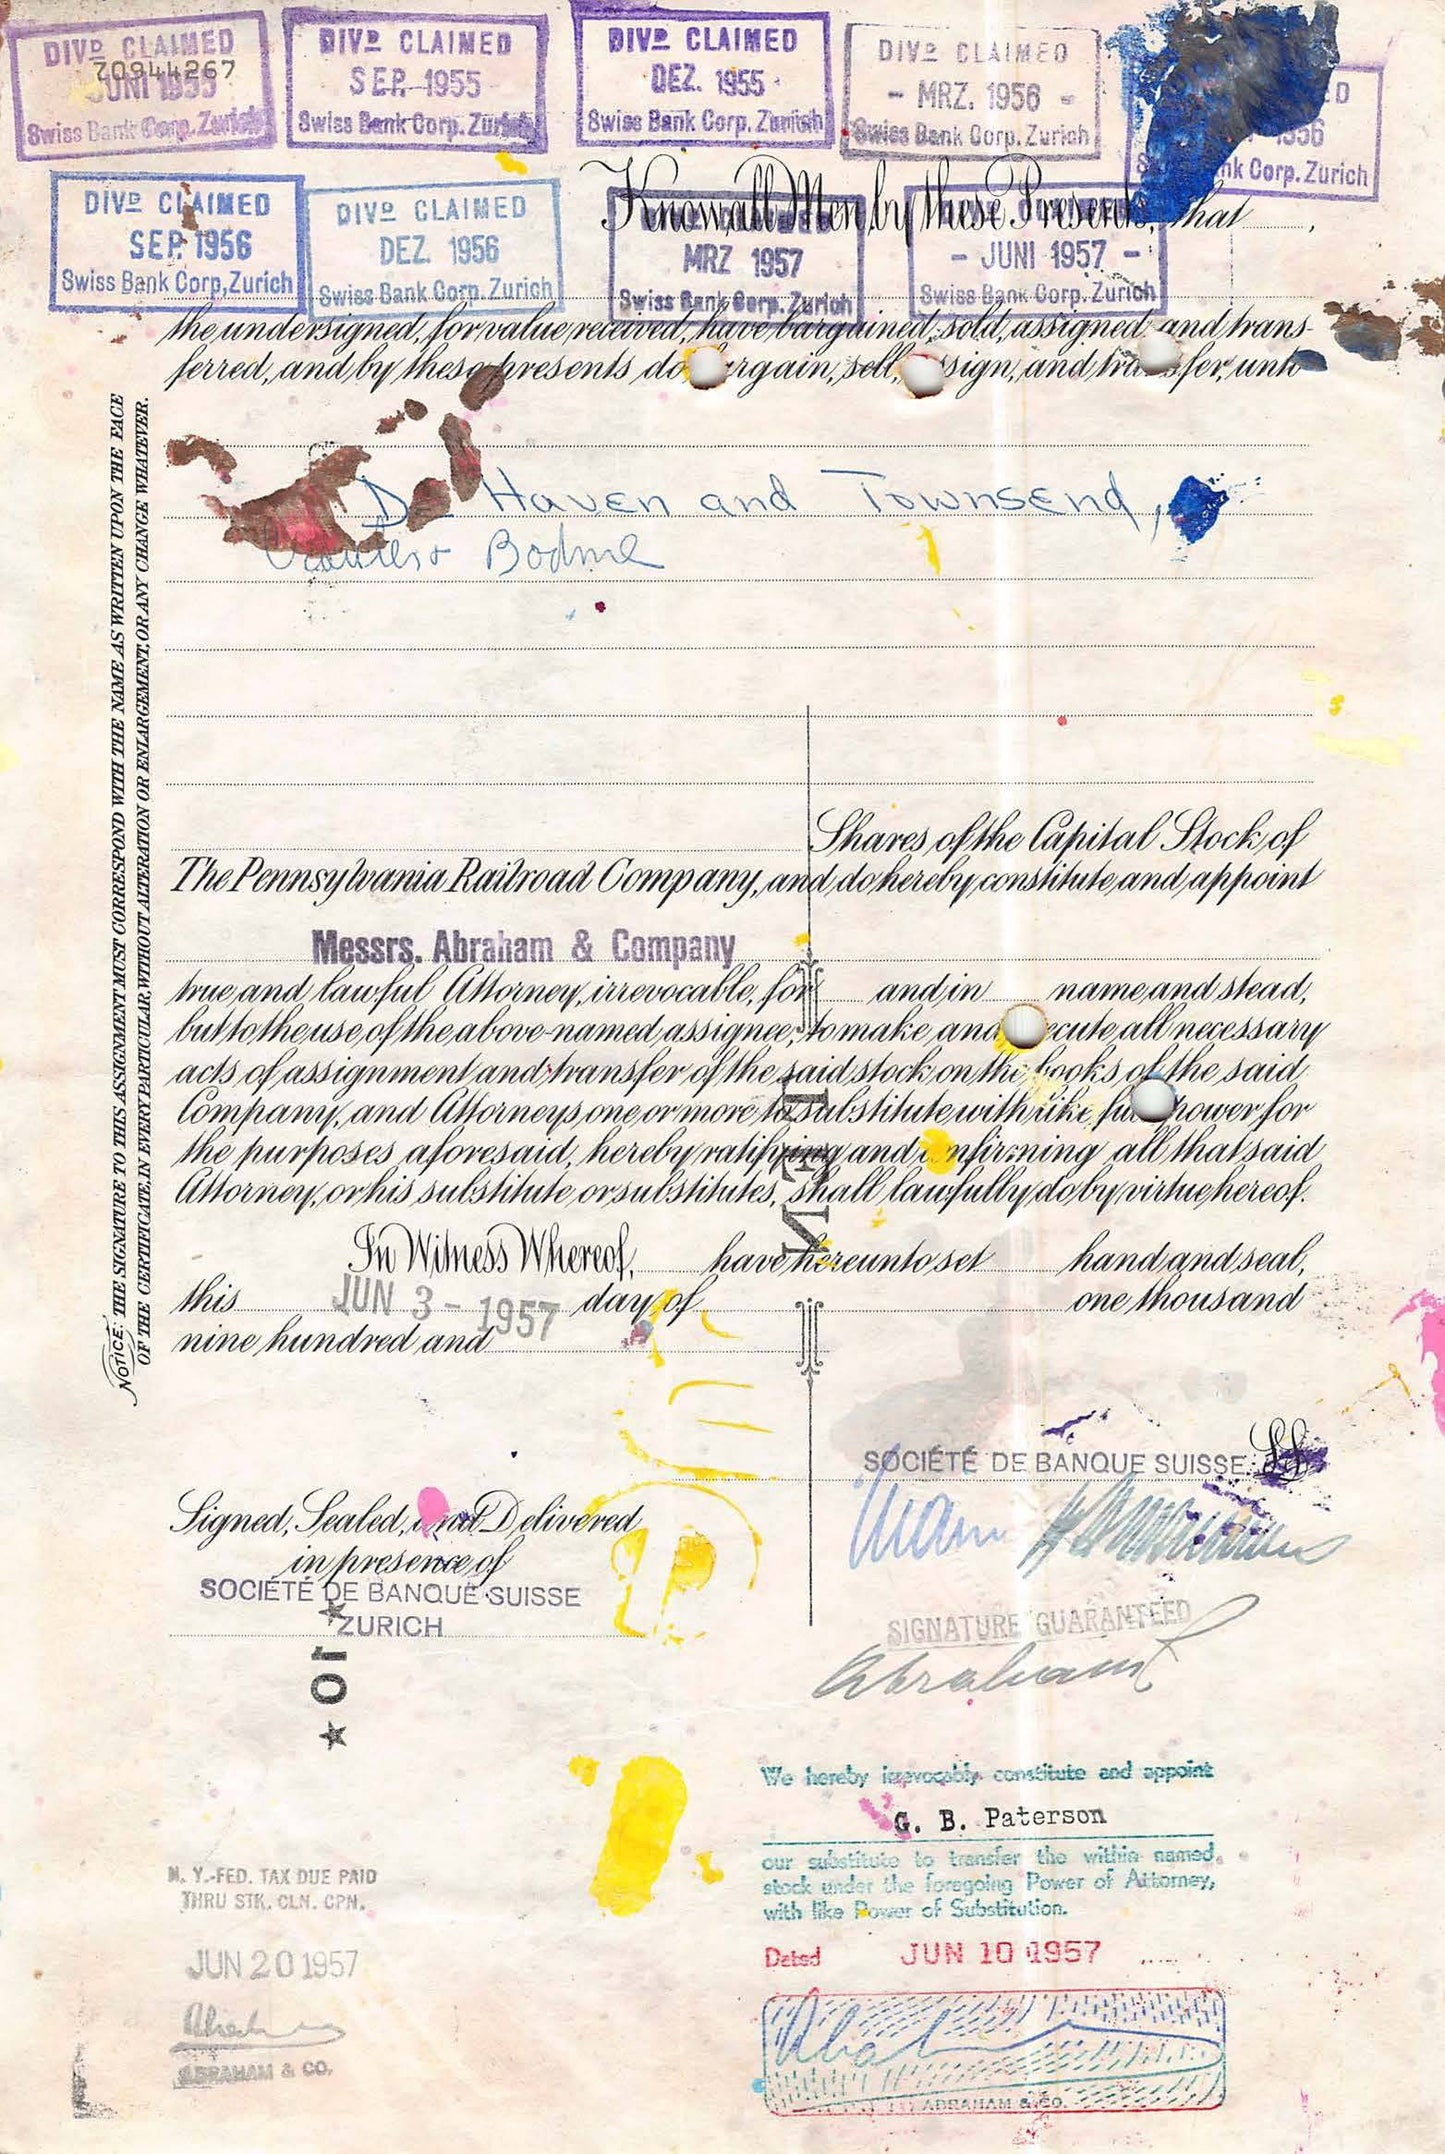 DIVD CLAIMED
70944267
JUNI 1955
Swiss Bank Corp. Zurich
DIVD CLAIMED
SEP. 1955
Swiss Bank Corp. Zurich
DIVD CLAIMED
DEZ. 1955
Swiss Bank Corp. Zurich
DIVD CLAIMED
- MRZ. 1956 -
Swiss Bank Corp. Zurich
1956
nk Corp. Zurich
DIVD CLAIMED
SEP. 1956
Swiss Bank Corp, Zurich
DIVD CLAIMED
DEZ. 1956
Swiss Bank Corp. Zurich
MRZ 1957
Swiss Bank Corp. Zurich
- JUNI 1957 -
Swiss Bank Corp. Zurich
Know all Men by these Presents, that ,
the undersigned, for value received, have bargained, sold, assigned and trans-
ferred, and by these presents do bargain, sell, assign, and transfer, unto
Haven and Townsend,
Bodine
Shares of the Capital Stock of
The Pennsylvania Railroad Company, and do hereby constitute and appoint
Messrs. Abraham & Company
true and lawful Attorney, irrevocable, for and in name and stead,
but to the use of the above-named assignee, to make and execute all necessary
acts of assignment and transfer of the said stock on the books of the said
Company, and Attorneys one or more to substitute with like full power for
the purposes aforesaid, hereby ratifying and confirming all that said
Attorney, or his substitute or substitutes, shall lawfully do by virtue hereof.
In Witness Whereof, have hereunto set hand and seal,
this JUN 3 - 1957 day of one thousand
nine hundred and
NOTICE: THE SIGNATURE TO THIS ASSIGNMENT MUST CORRESPOND WITH THE NAME AS WRITTEN UPON THE FACE
OF THE CERTIFICATE, IN EVERY PARTICULAR, WITHOUT ALTERATION OR ENLARGEMENT, OR ANY CHANGE WHATEVER.
SOCIÉTÉ DE BANQUE SUISSE
Signed, Sealed, and Delivered
in presence of
SOCIÉTÉ DE BANQUE SUISSE
ZURICH
SIGNATURE GUARANTEED
Abraham
We hereby irrevocably constitute and appoint
G. B. Paterson
our substitute to transfer the within named
stock under the foregoing Power of Attorney,
with like Power of Substitution.
Dated JUN 10 1957
ABRAHAM & CO.
N. Y.-FED. TAX DUE PAID
THRU STK. CLN. CPN.
JUN 20 1957
ABRAHAM & CO.